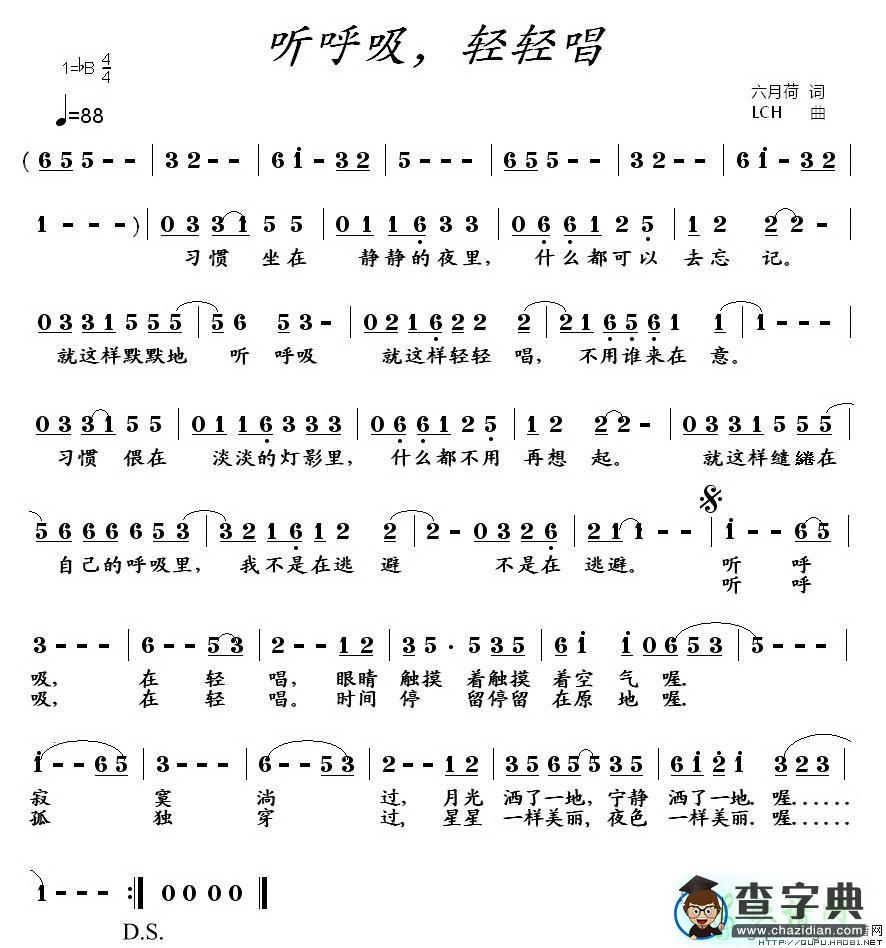 听呼吸，轻轻唱
1=♭B 4/4
♩=88
六月荷 词
LCH 曲
( 6 5 5 - - | 3 2 - - | 6 i - 3 2 | 5 - - - | 6 5 5 - - | 3 2 - - | 6 i - 3 2 |
1 - - - ) | 0 3 3 1 5 5 | 0 1 1 6 3 3 | 0 6 6 1 2 5 | 1 2 2 | 2 - |
习惯 坐在 静静的夜里， 什么都可以 去忘 记。
0 3 3 1 5 5 5 | 5 6 5 3 - | 0 2 1 6 2 2 2 | 2 1 6 5 6 1 | 1 - - - |
就这样默默地 听 呼吸 就这样轻轻 唱， 不用谁来在 意。
0 3 3 1 5 5 | 0 1 1 6 3 3 3 | 0 6 6 1 2 5 | 1 2 2 2 - | 0 3 3 1 5 5 5 |
习惯 偎在 淡淡的灯影里， 什么都不用 再想 起。 就这样缱绻在
5 6 6 6 6 5 3 | 3 2 1 6 1 2 2 | 2 - 0 3 2 2 6 | 2 1 1 1 - - | i - - 6 5 |
自己的呼吸里， 我不是在逃 避 不是在 逃避。 听 呼
听 呼
3 - - - | 6 - - 5 3 | 2 - - 1 2 | 3 5 · 5 3 5 | 6 i i 0 6 5 3 | 5 - - - |
吸， 在 轻 唱， 眼睛 触摸 着触摸 着空 气 喔.
吸， 在 轻 唱。 时间 停 留停留 在原 地喔.
i - - 6 5 | 3 - - - | 6 - - 5 3 | 2 - - 1 2 | 3 5 6 5 5 3 5 | 6 i 2 i | 3 2 3 |
寂 寞 淌 过, 月光 洒了一地, 宁静 洒了一地. 喔......
孤 独 穿 过, 星星 一样美丽, 夜色 一样美丽. 喔......
1 - - - :| 0 0 0 0 |
D.S.
查字典
www.chazidian.com
HTTP://QUPU.HAO81.NET